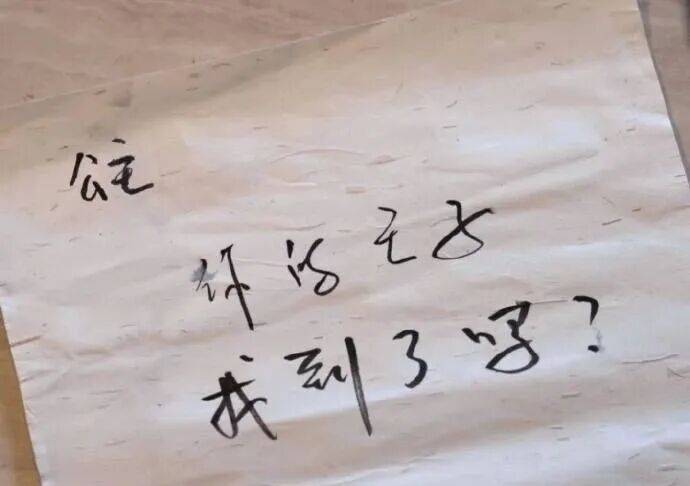 公主
你的王子
找到了吗？